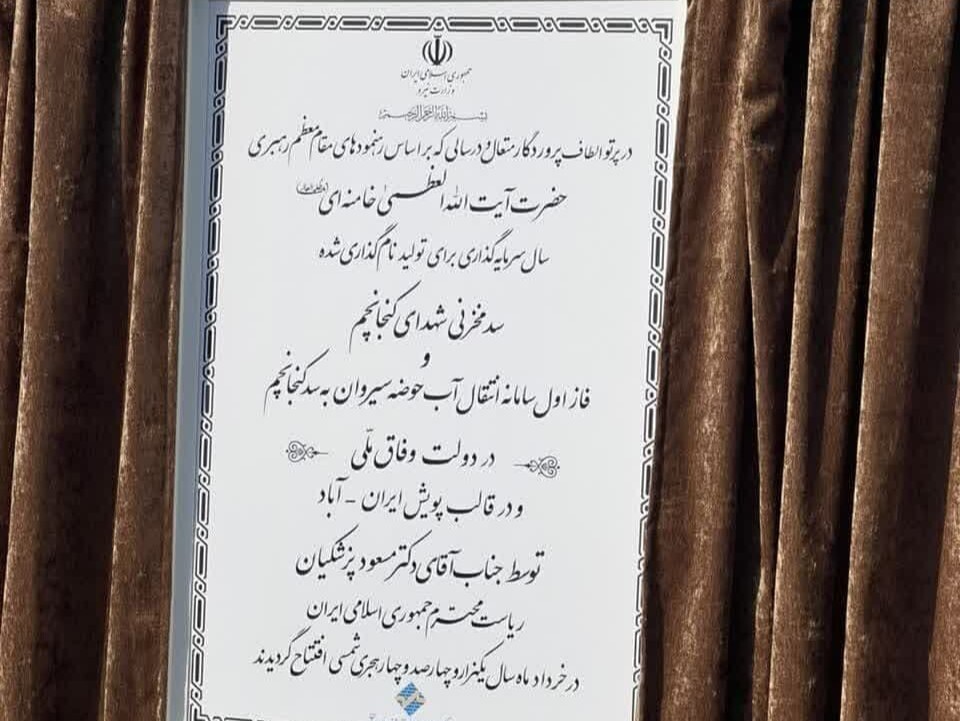 جمهوری اسلامی ایران
وزارت نیرو
بسم الله الرحمن الرحیم
در پرتو الطاف پروردگار متعال و در سالی که بر اساس رهنمودهای مقام معظم رهبری
حضرت آیت الله العظمی خامنه ای
سال سرمایه گذاری برای تولید نام گذاری شده
سد مخزنی شهدای کنجانچم
و
فاز اول سامانه انتقال آب حوضه سیروان به سد کنجانچم
در دولت وفاق ملّی
و در قالب پویش ایران - آباد
توسط جناب آقای دکتر مسعود پزشکیان
ریاست محترم جمهوری اسلامی ایران
در خرداد ماه سال یکهزار و چهارصد و چهار هجری شمسی افتتاح گردیدند